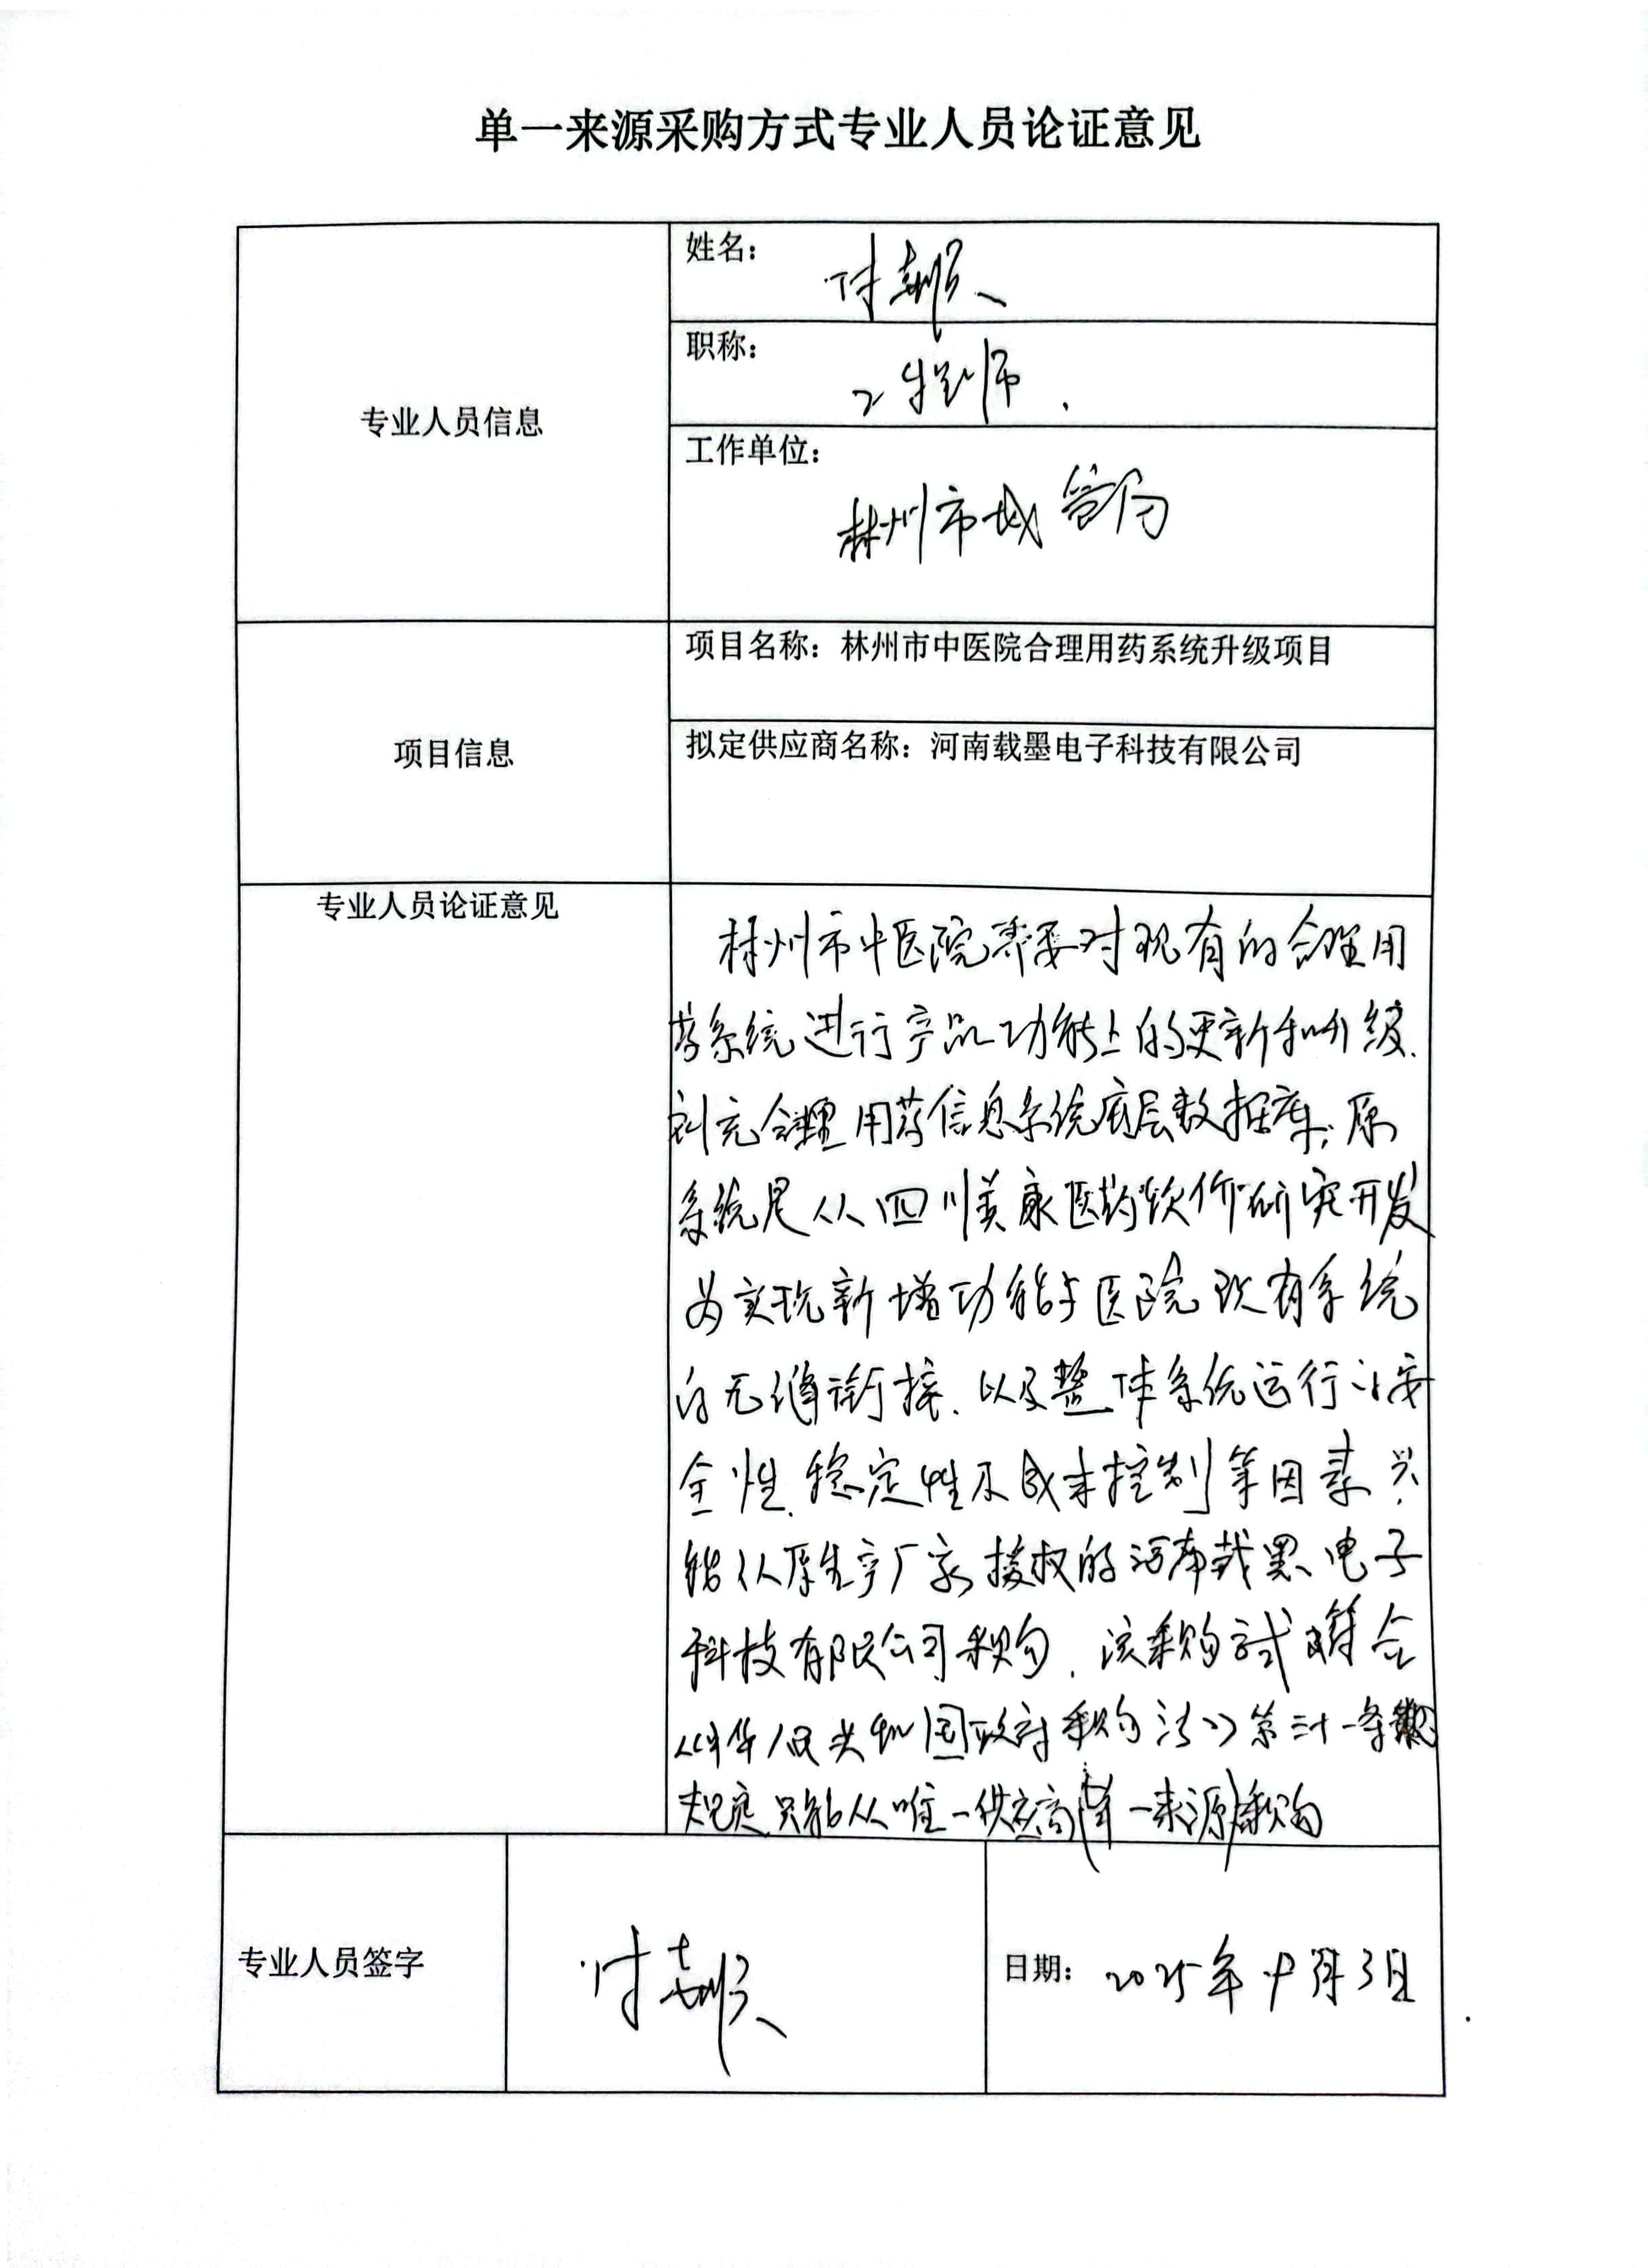 单一来源采购方式专业人员论证意见
专业人员信息
姓名：
付
职称：
工程师.
工作单位：
林州市城管局
项目信息
项目名称：林州市中医院合理用药系统升级项目
拟定供应商名称：河南载墨电子科技有限公司
专业人员论证意见
林州市中医院需要对现有的合理用
药系统进行产品功能上的更新和升级.
充合理用药信息系统底层数据库,原
系统是从四川美康医药软件研究开发
为实现新增功能与医院现有系统
的无缝衔接.以及整体系统运行的安
全性.稳定性及成本控制等因素只
能从原生产厂家授权的河南载墨电子
科技有限公司采购.该采购方式符合
《中华人民共和国政府采购法》第三十一条
规定只能从唯一供应商(单一来源)采购
专业人员签字
付
日期：2025年9月3日